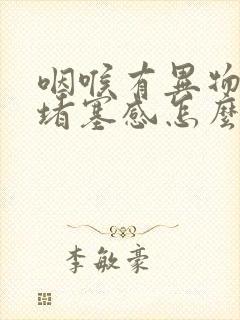 咽喉有異物
堵塞感怎麼
李敏豪